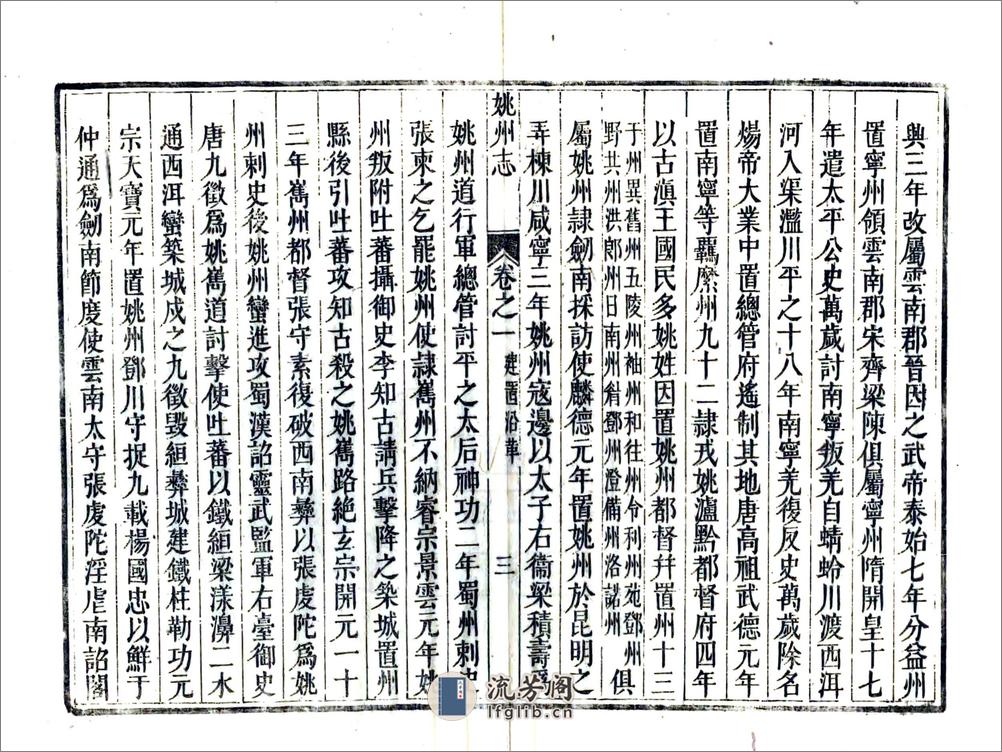 興三年改屬雲南郡晉因之武帝泰始七年分益州
置寧州領雲南郡宋齊梁陳俱屬寧州隋開皇十七
年遣太平公史萬歲討南寧叛羌自蜻蛉川渡西洱
河入渠濫川平之十八年南寧羌復反史萬歲除名
煬帝大業中置總管府遙制其地唐高祖武德元年
置南寧等羈縻州九十二隸戎姚瀘黔都督府四年
以古滇王國民多姚姓因置姚州都督幷置州十三
于州異舊州五陵州袖州和往州舍利州苑鄧州
野共州洪郎州日南州眷鄧州澄備州洛諾州
俱
屬姚州隸劒南採訪使麟德元年置姚州於昆明之
弄棟川咸寧三年姚州寇邊以太子右衞梁積壽爲
姚州志
卷之一
建置沿革
三
姚州道行軍總管討平之太后神功二年蜀州刺史
張柬之乞罷姚州使隸巂州不納睿宗景雲元年姚
州叛附吐蕃攝御史李知古請兵擊降之築城置州
縣後引吐蕃攻知古殺之姚巂路絶玄宗開元一十
三年巂州都督張守素復破西南彝以張虔陀爲姚
州刺史後姚州蠻進攻蜀漢詔靈武監軍右臺御史
唐九徵爲姚巂道討擊使吐蕃以鐵絙梁漾濞二水
通西洱蠻築城戍之九徵毀絙彝城建鐵柱勒功元
宗天寶元年置姚州鄧川守捉九載楊國忠以鮮于
仲通爲劒南節度使雲南太守張虔陀淫虐南詔閣
流芳閣
lfglib.cn